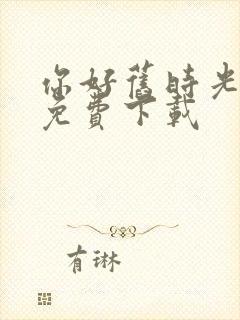 你好舊時光
免費下載
有琳